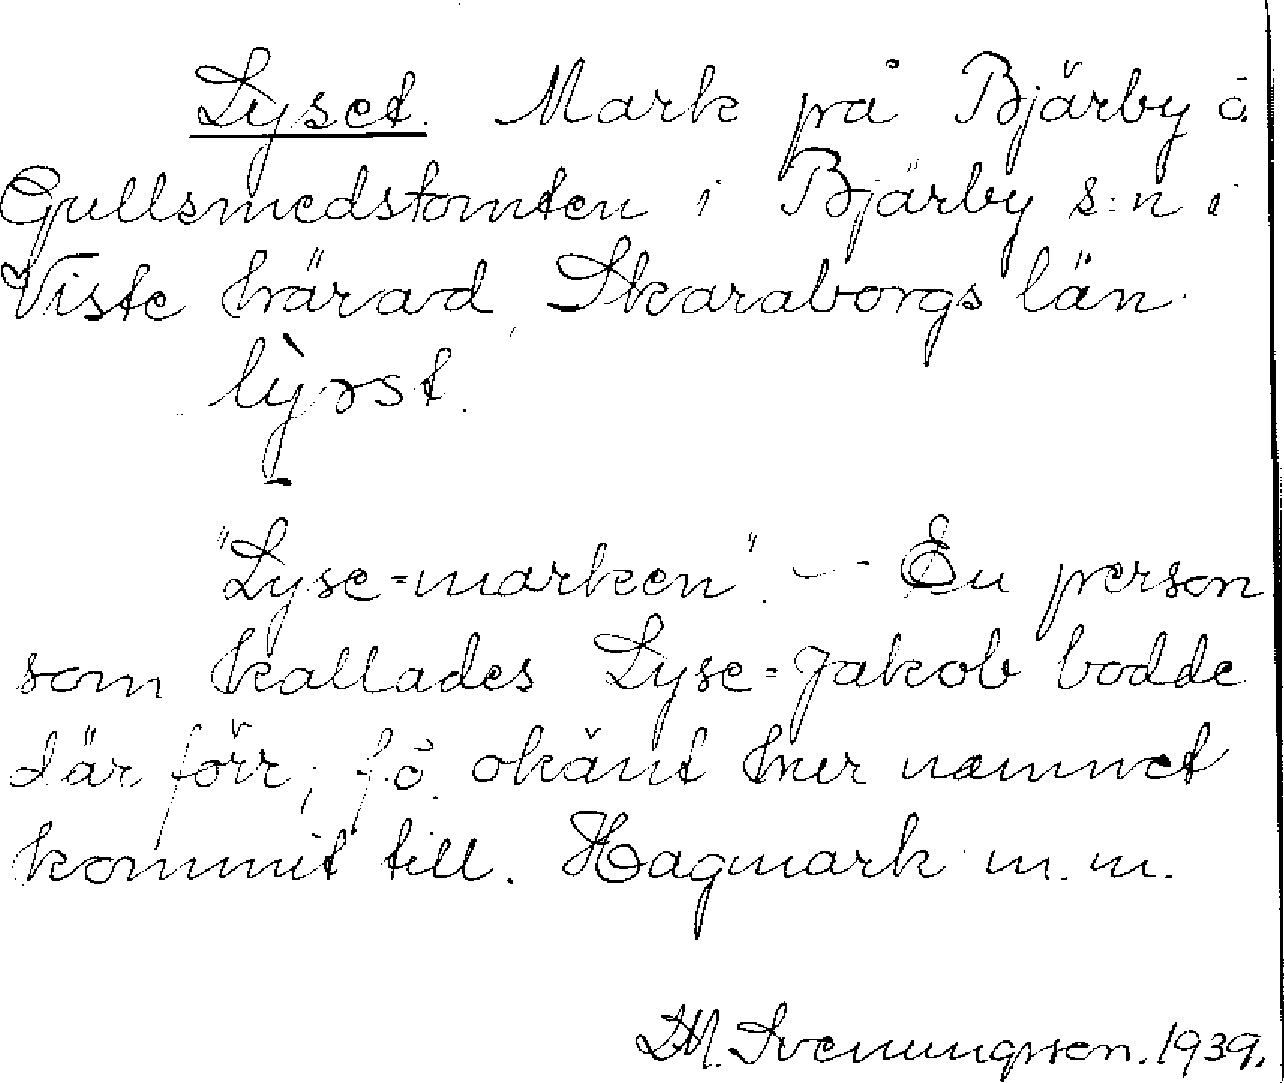 Lyset. Mark på Bjärby o.
Gullsmedstomten i Bjärby s:n i
Viste härad, Skaraborgs län.
lỳrst.
"Lyse-marken". - En person
som kallades Lyse-Jakob bodde
där förr; f.ö. okänt hur namnet
kommit till. Hagmark m.m.
Svenungsson. 1939.